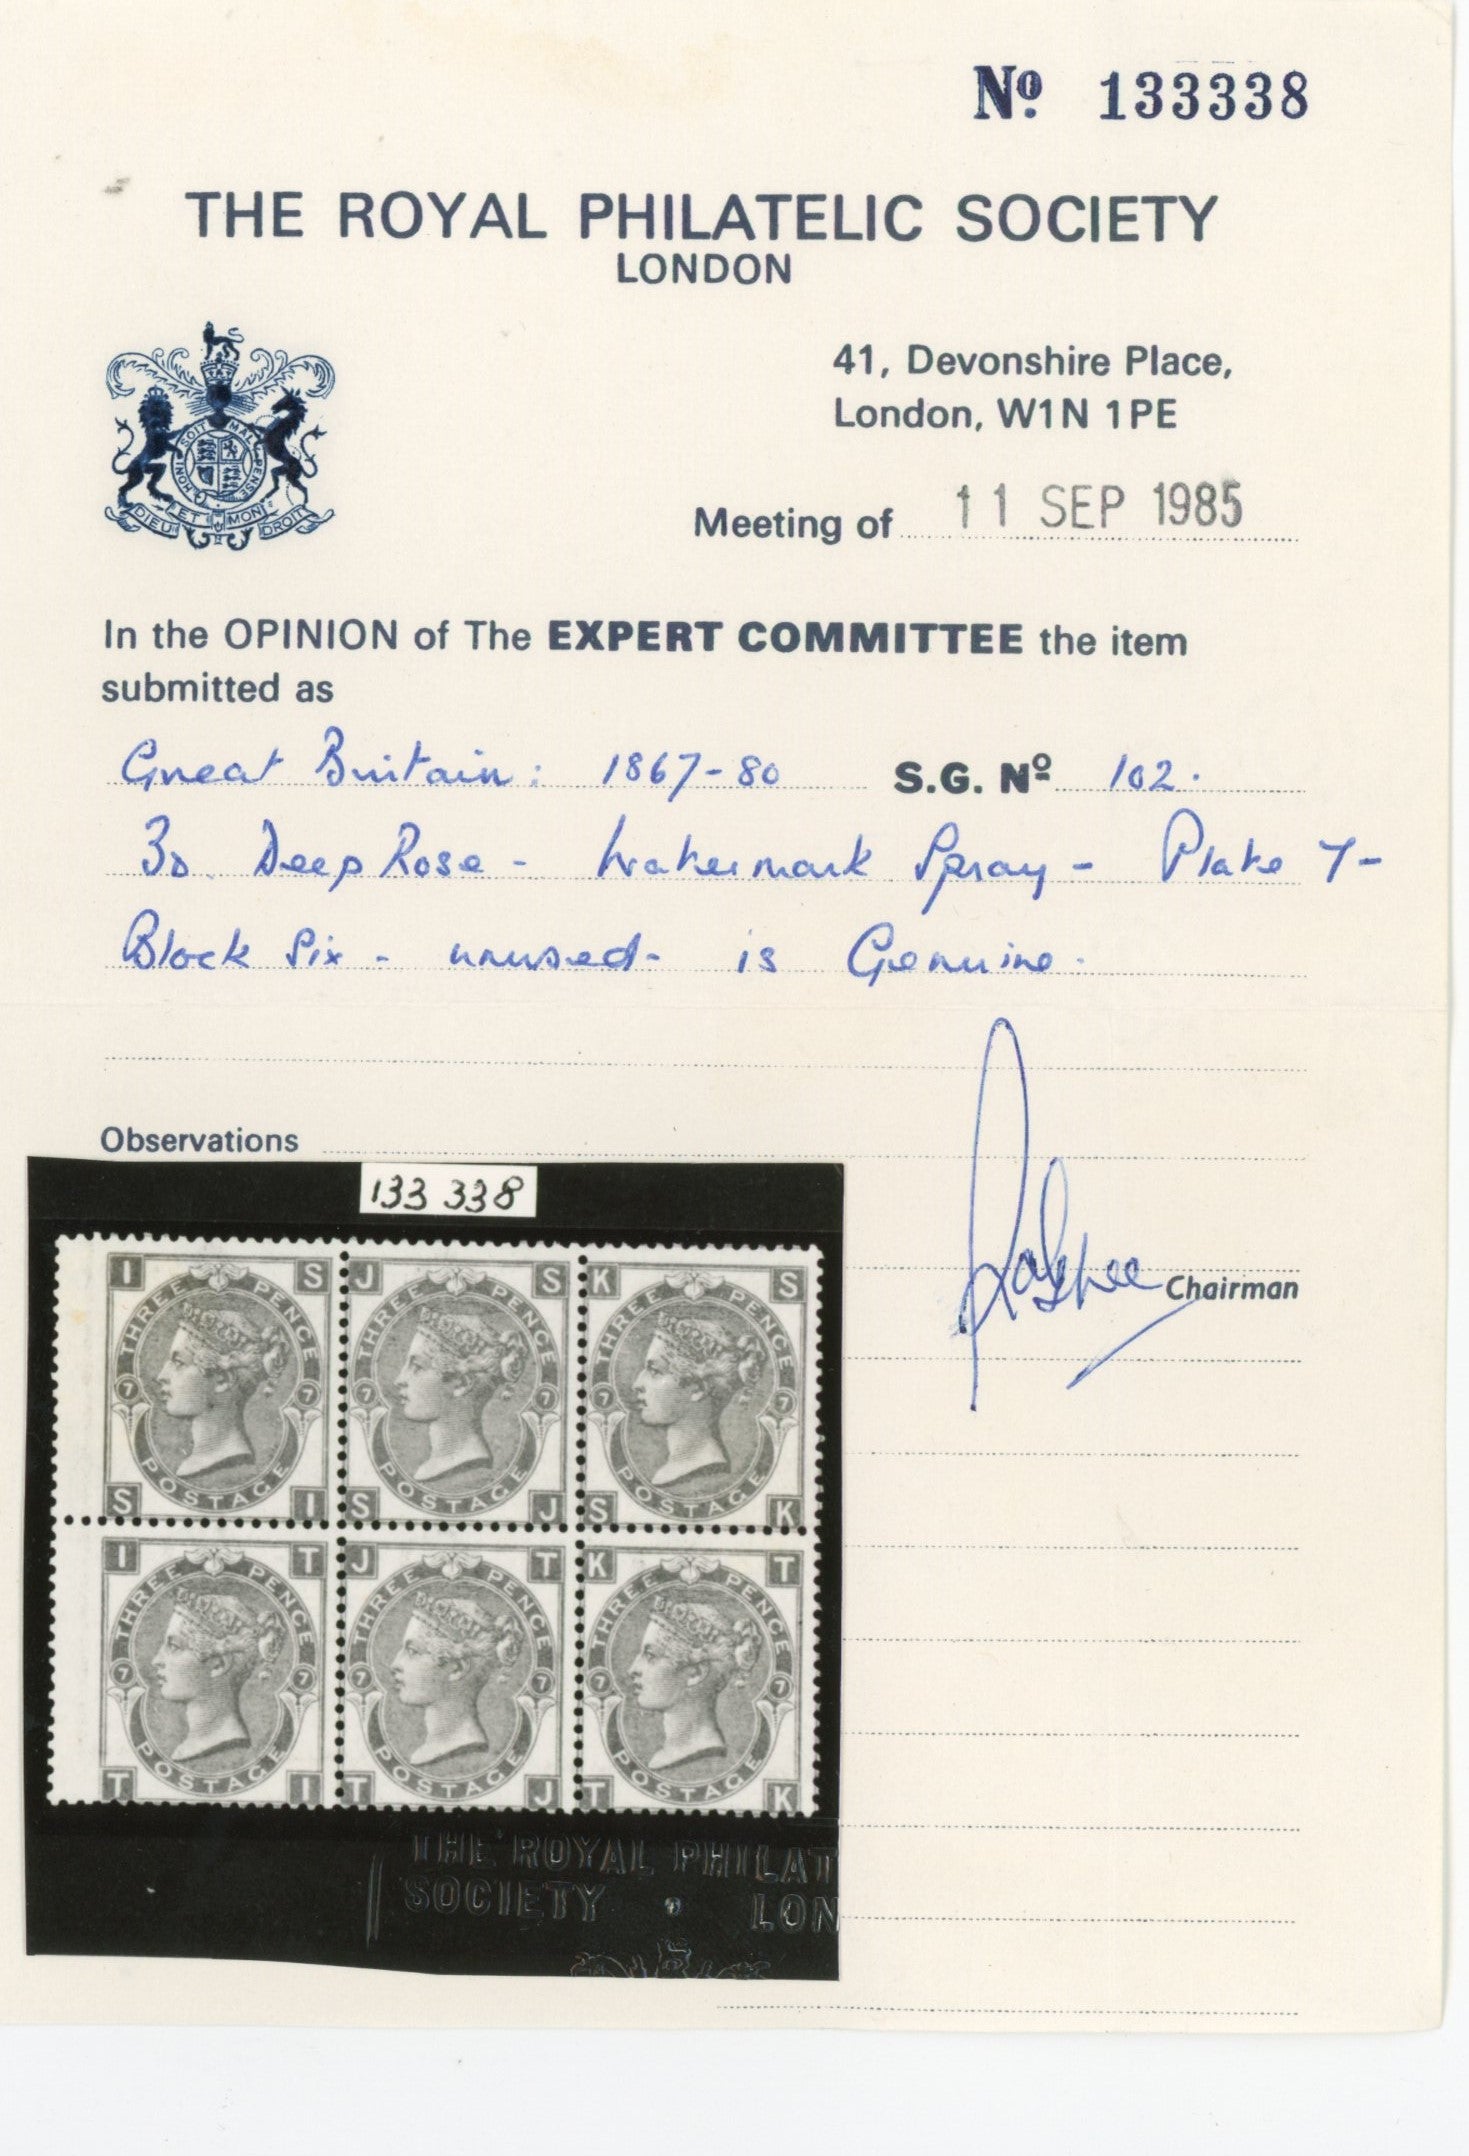 Nº 133338
THE ROYAL PHILATELIC SOCIETY
LONDON
41, Devonshire Place,
London, W1N 1PE
HONI SOIT MAL PENSE
DIEU ET MON DROIT
Meeting of 11 SEP 1985
In the OPINION of The EXPERT COMMITTEE the item
submitted as
Great Britain: 1867-80 S.G. Nº 102.
3D. Deep Rose - Watermark Spray - Plate 7-
Block Six - unused - is Genuine.
Observations
Chairman
133 338
I S J S K S
THREE PENCE THREE PENCE THREE PENCE
7 7 7 7 7 7
POSTAGE POSTAGE POSTAGE
S I S J S K
I T J T K T
THREE PENCE THREE PENCE THREE PENCE
7 7 7 7 7 7
POSTAGE POSTAGE POSTAGE
T I T J T K
THE ROYAL PHILAT
SOCIETY · LON